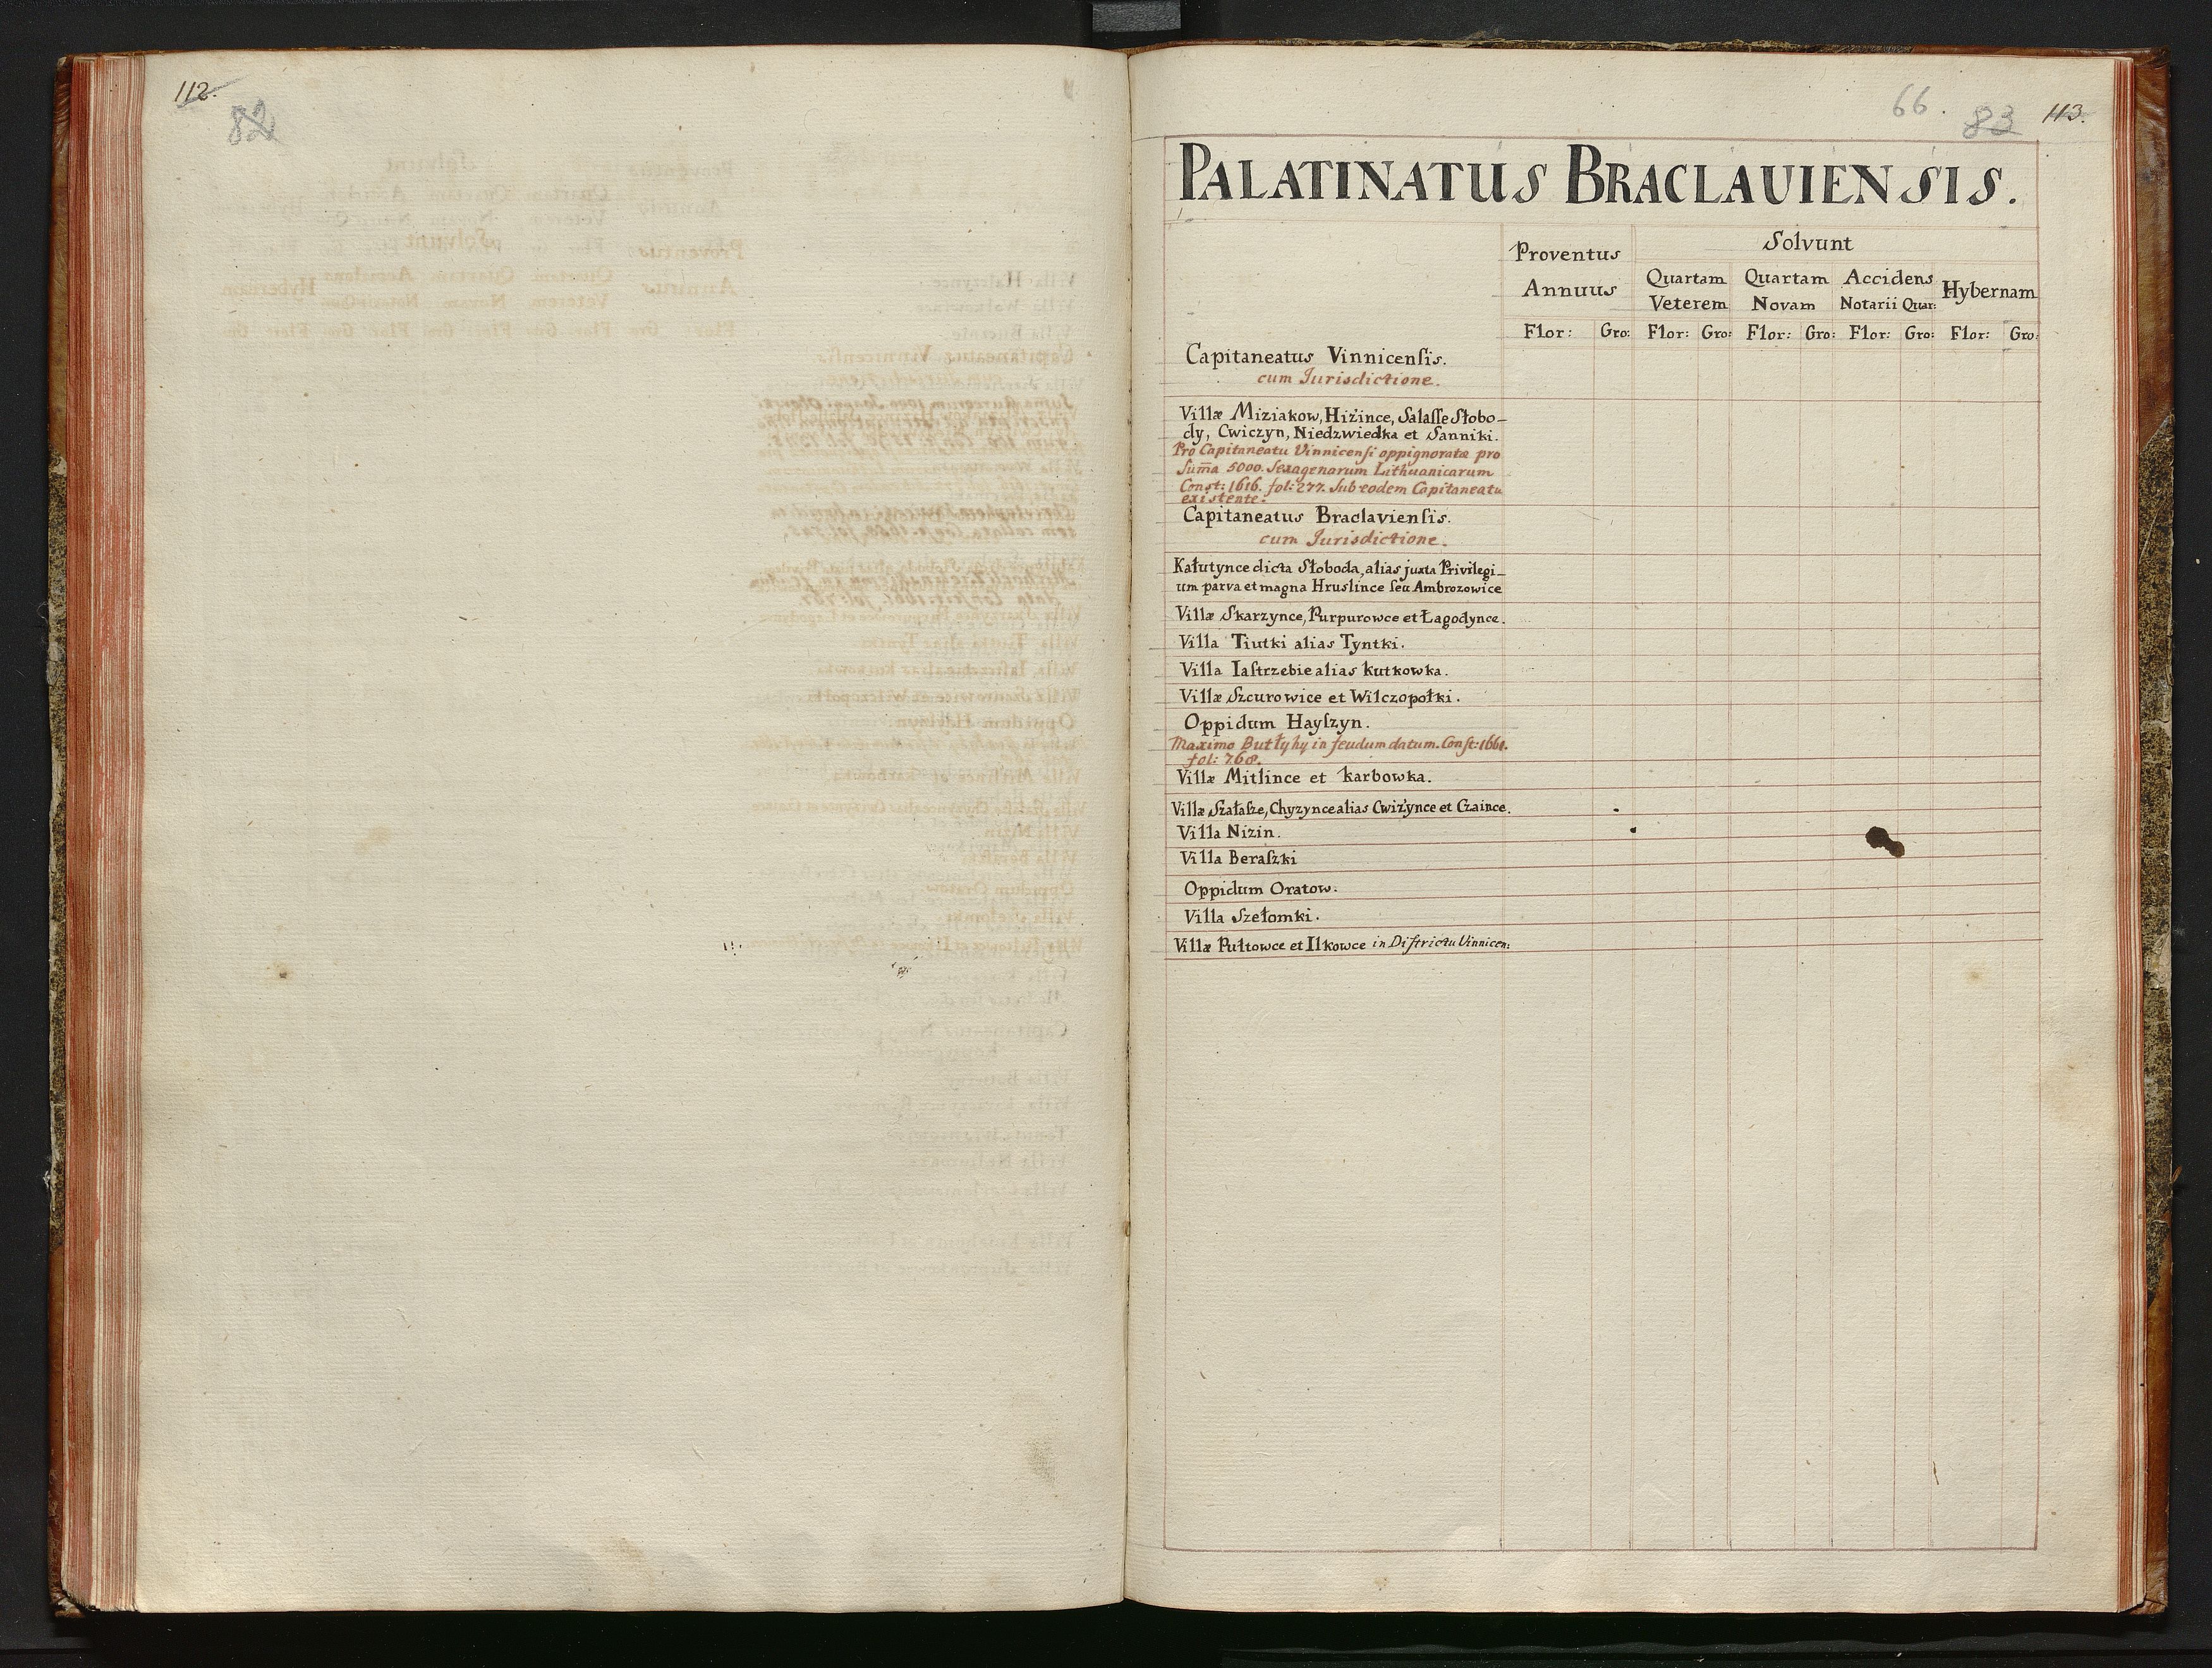 112.
82
66. 83 113.
PALATINATUS BRACLAUIENSIS.
Proventus Annuus
Solvunt
Quartam Veterem
Quartam Novam
Accidens Notarii Quar:
Hybernam
Flor: Gro: Flor: Gro: Flor: Gro: Flor: Gro: Flor: Gro:
Capitaneatus Vinnicenſis.
cum Jurisdictione.
Villæ Miziakow, Hiżince, Salaſſe Słobo-
dy, Cwiczyn, Niedzwiedka et Sanniki.
Pro Capitaneatu Vinnicenſi oppignoratæ pro
Sum̄a 5000. Sexagenarum Lithuanicarum
Const: 1616. fol: 277. Sub eodem Capitaneatu
existente.
Capitaneatus Braclavienſis.
cum Jurisdictione.
Kałutynce dicta Słoboda, alias juxta Privilegi-
um parva et magna Hruslince ſeu Ambrozowice
Villæ Skarzynce, Purpurowce et Łagodynce.
Villa Tiutki alias Tyntki.
Villa Iaſtrzebie alias kutkowka.
Villæ Szcurowice et Wilczopołki.
Oppidum Hayſzyn.
Maximo Butłyhy in feudum datum. Conſt: 1661.
fol: 768.
Villæ Mitlince et karbowka.
Villæ Szałaſze, Chyzynce alias Cwiżynce et Czaince.
Villa Nizin.
Villa Beraſzki
Oppidum Oratow.
Villa Szełomki.
Villæ Pułtowce et Ilkowce in Diſtrictu Vinnicen: